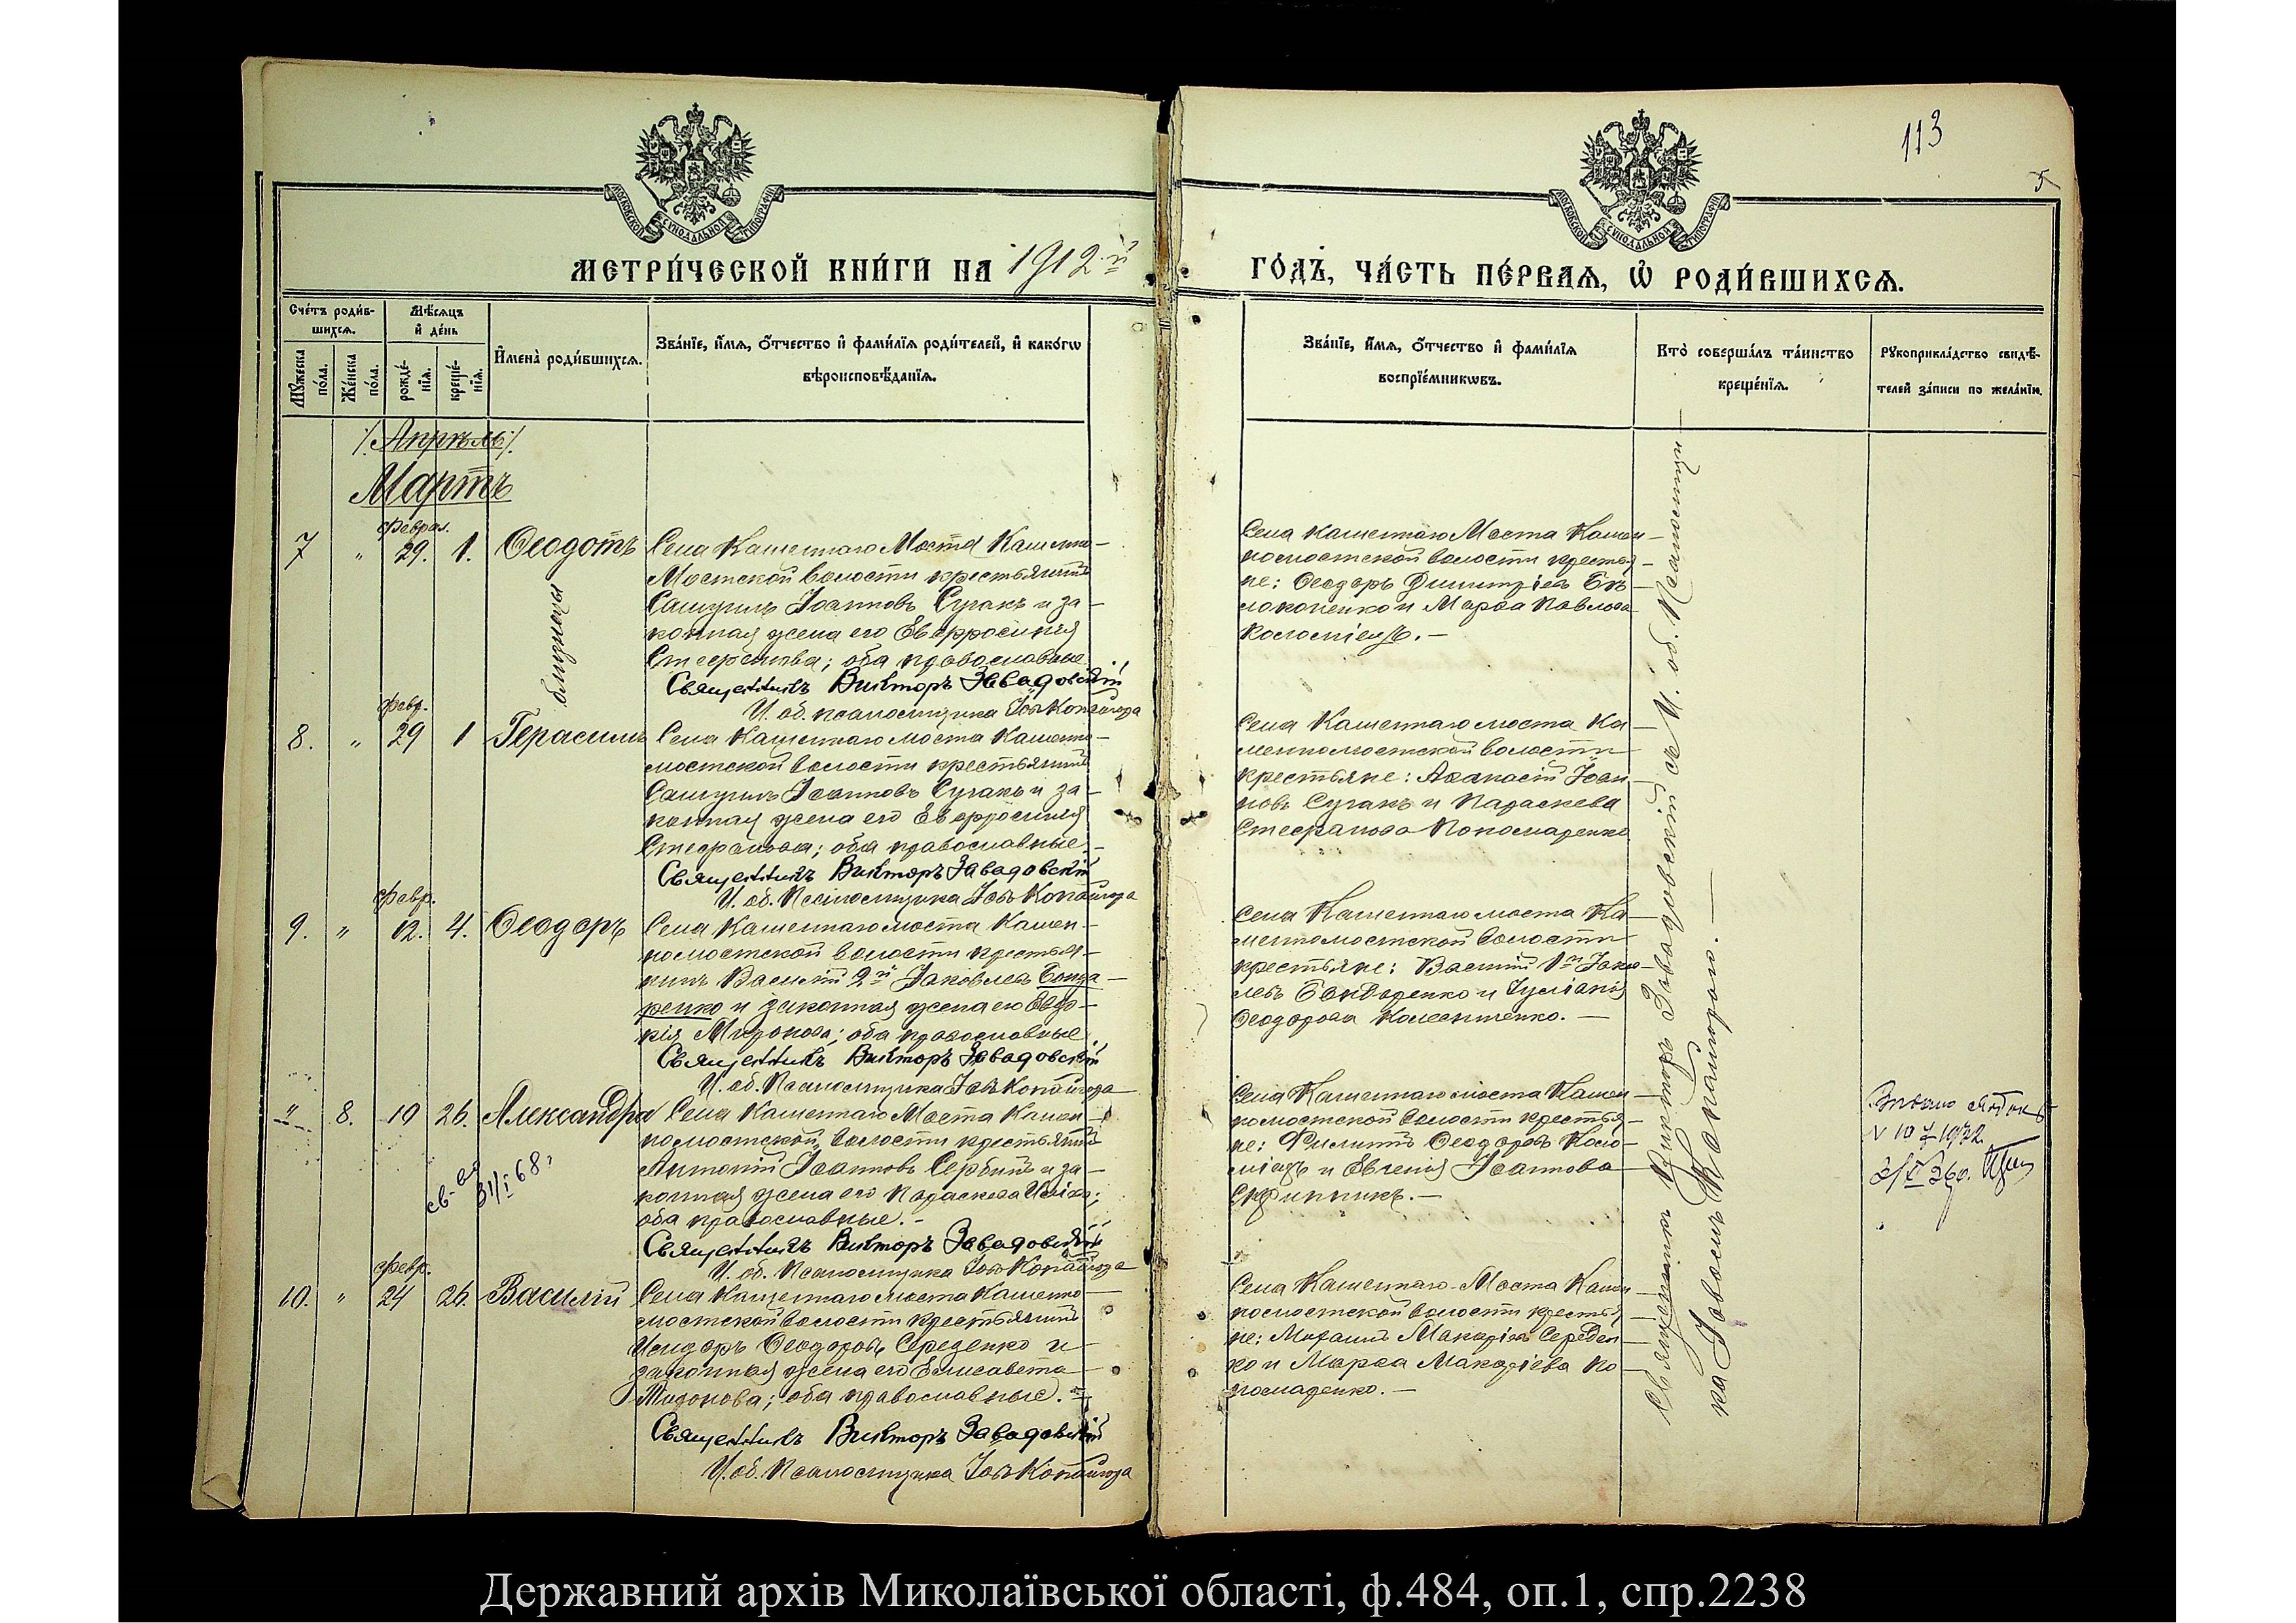 113
5
МОСКОВСКОЙ СУНОДАЛЬНОЙ ТИПОГРАФІИ
МОСКОВСКОЙ СУНОДАЛЬНОЙ ТИПОГРАФІИ
МЕТРИ́ЧЕСКОЙ КНИ́ГИ НА 1912-й
ГО́ДЪ, ЧА́СТЬ ПЕ́РВАЯ, Ѡ РОДИ́ВШИХСЯ.
Сче́тъ роди́в-
шихся.
Мѣ́сяцъ
и҆ де́нь
Му́жеска по́ла.
Же́нска по́ла.
рожде́-нїя.
креще́-нїя.
И҆мена̀ роди́вшихся.
Зва́нїе, и҆́мя, ѻ҆́тчество и҆ фами́лїя роди́телей, и҆ како́гѡ
вѣроисповѣ́данїя.
Зва́нїе, и҆́мя, ѻ҆́тчество и҆ фами́лїя
воспрїе́мникѡвъ.
Кто̀ соверша́лъ та́инство
креще́нїя.
Рукоприкла́дство свидѣ́-
телей за́писи по жела́нїю.
/.Апрѣль/.
Мартъ
Феврал.
7 " 29. 1. Ѳеодотъ
близнецы
Села Каменнаго Моста Каменно-
Мостской волости крестьянинъ
Самуилъ Іоанновъ Сугакъ и за-
конная жена его Евфросинія
Стефанова; оба православные
Священникъ Викторъ Завадовскій
И. об. псаломщика Іовъ Копайгора
Села Каменнаго Моста Камен-
номостской волости крестья-
не: Ѳеодоръ Димитріевъ Бѣ-
локоненко и Марѳа Павлова
Коломіецъ.-
Февр.
8. " 29 1 Герасимъ
Села Каменнаго моста Каменно-
мостской волости крестьянинъ
Самуилъ Іоанновъ Сугакъ и за-
конная жена его Евфросинія
Стефанова; оба православные.-
Священникъ Викторъ Завадовскій
И. об. Псаломщика Іовъ Копайгора
Села Каменнаго моста Ка-
менномостской волости
крестьяне: Аѳанасій Іоан-
новъ Сугакъ и Параскева
Стефанова Пономаренко
Февр.
9. " 12. 4. Ѳеодоръ
Села Каменнаго моста Камен-
номостской волости крестья-
нинъ Василій 2й Іаковлевъ Бонда-
ренко и законная жена его Евдо-
кія Миронова; оба православные.
Священникъ Викторъ Завадовскій
И. об. Псаломщика Іовъ Копайгора
Села Каменнаго моста Ка-
менномостской волости
крестьяне: Василій 1й Іаков-
левъ Бондаренко и Іуліанія
Ѳеодорова Колесниченко.-
" 8. 19 26. Александра
св-во 31/I 68.
Села Каменнаго Моста Камен-
номостской волости крестьянинъ
Антоній Іоанновъ Сербинъ и за-
конная жена его Параскева
оба православные.-
Священникъ Викторъ Завадовскій
И. об. Псаломщика Іовъ Копайгора
Села Каменнаго моста Камен-
номостской волости крестья-
не: Филиппъ Ѳеодоровъ Коло-
міецъ и Евгенія Іоаннова
Скрипникъ.-
Февр.
10. " 24 26. Василій
Села Каменнаго моста Каменно-
мостской волости крестьянинъ
Исидоръ Ѳеодоровъ Середенко и
законная жена его Елисавета
оба православные.
Священникъ Викторъ Завадовскій
И. об. Псаломщика Іовъ Копайгора
Села Каменнаго-Моста Камен-
номостской волости крестья-
не: Михаилъ Макаріевъ Середен-
ко и Марѳа Макаріева По-
номаренко.-
Священникъ Викторъ Завадовскій съ И. об. Псаломщи-
ка Іовомъ Копайгорою.-
Державний архів Миколаївської області, ф.484, оп.1, спр.2238